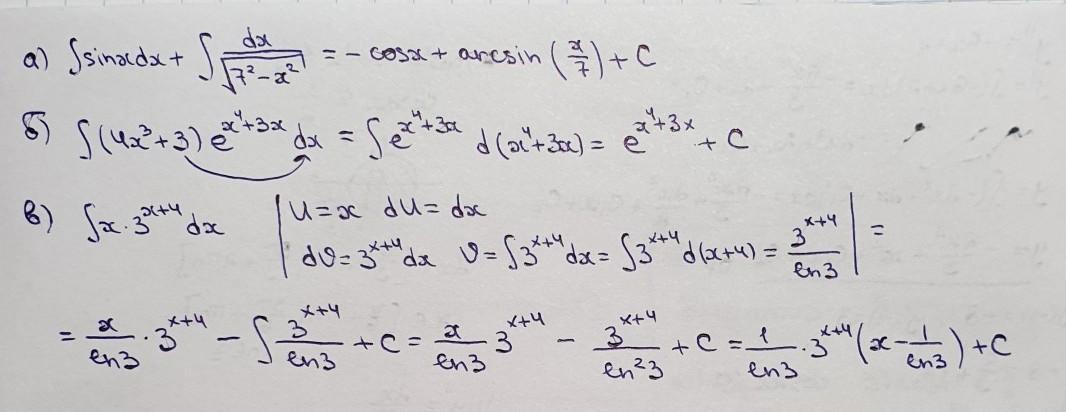 а) ∫sinxdx + ∫ dx/√(7²-x²) = - cosx + arcsin (x/7) + C
б) ∫(4x³+3) e^(x⁴+3x) dx = ∫e^(x⁴+3x) d(x⁴+3x) = e^(x⁴+3x) + C
в) ∫x·3^(x+4) dx | U = x dU = dx
dϑ = 3^(x+4) dx ϑ = ∫3^(x+4) dx = ∫3^(x+4) d(x+4) = 3^(x+4)/ln3 | =
= x/ln3 · 3^(x+4) - ∫ 3^(x+4)/ln3 + C = x/ln3 3^(x+4) - 3^(x+4)/ln²3 + C = 1/ln3 · 3^(x+4) (x - 1/ln3) + C